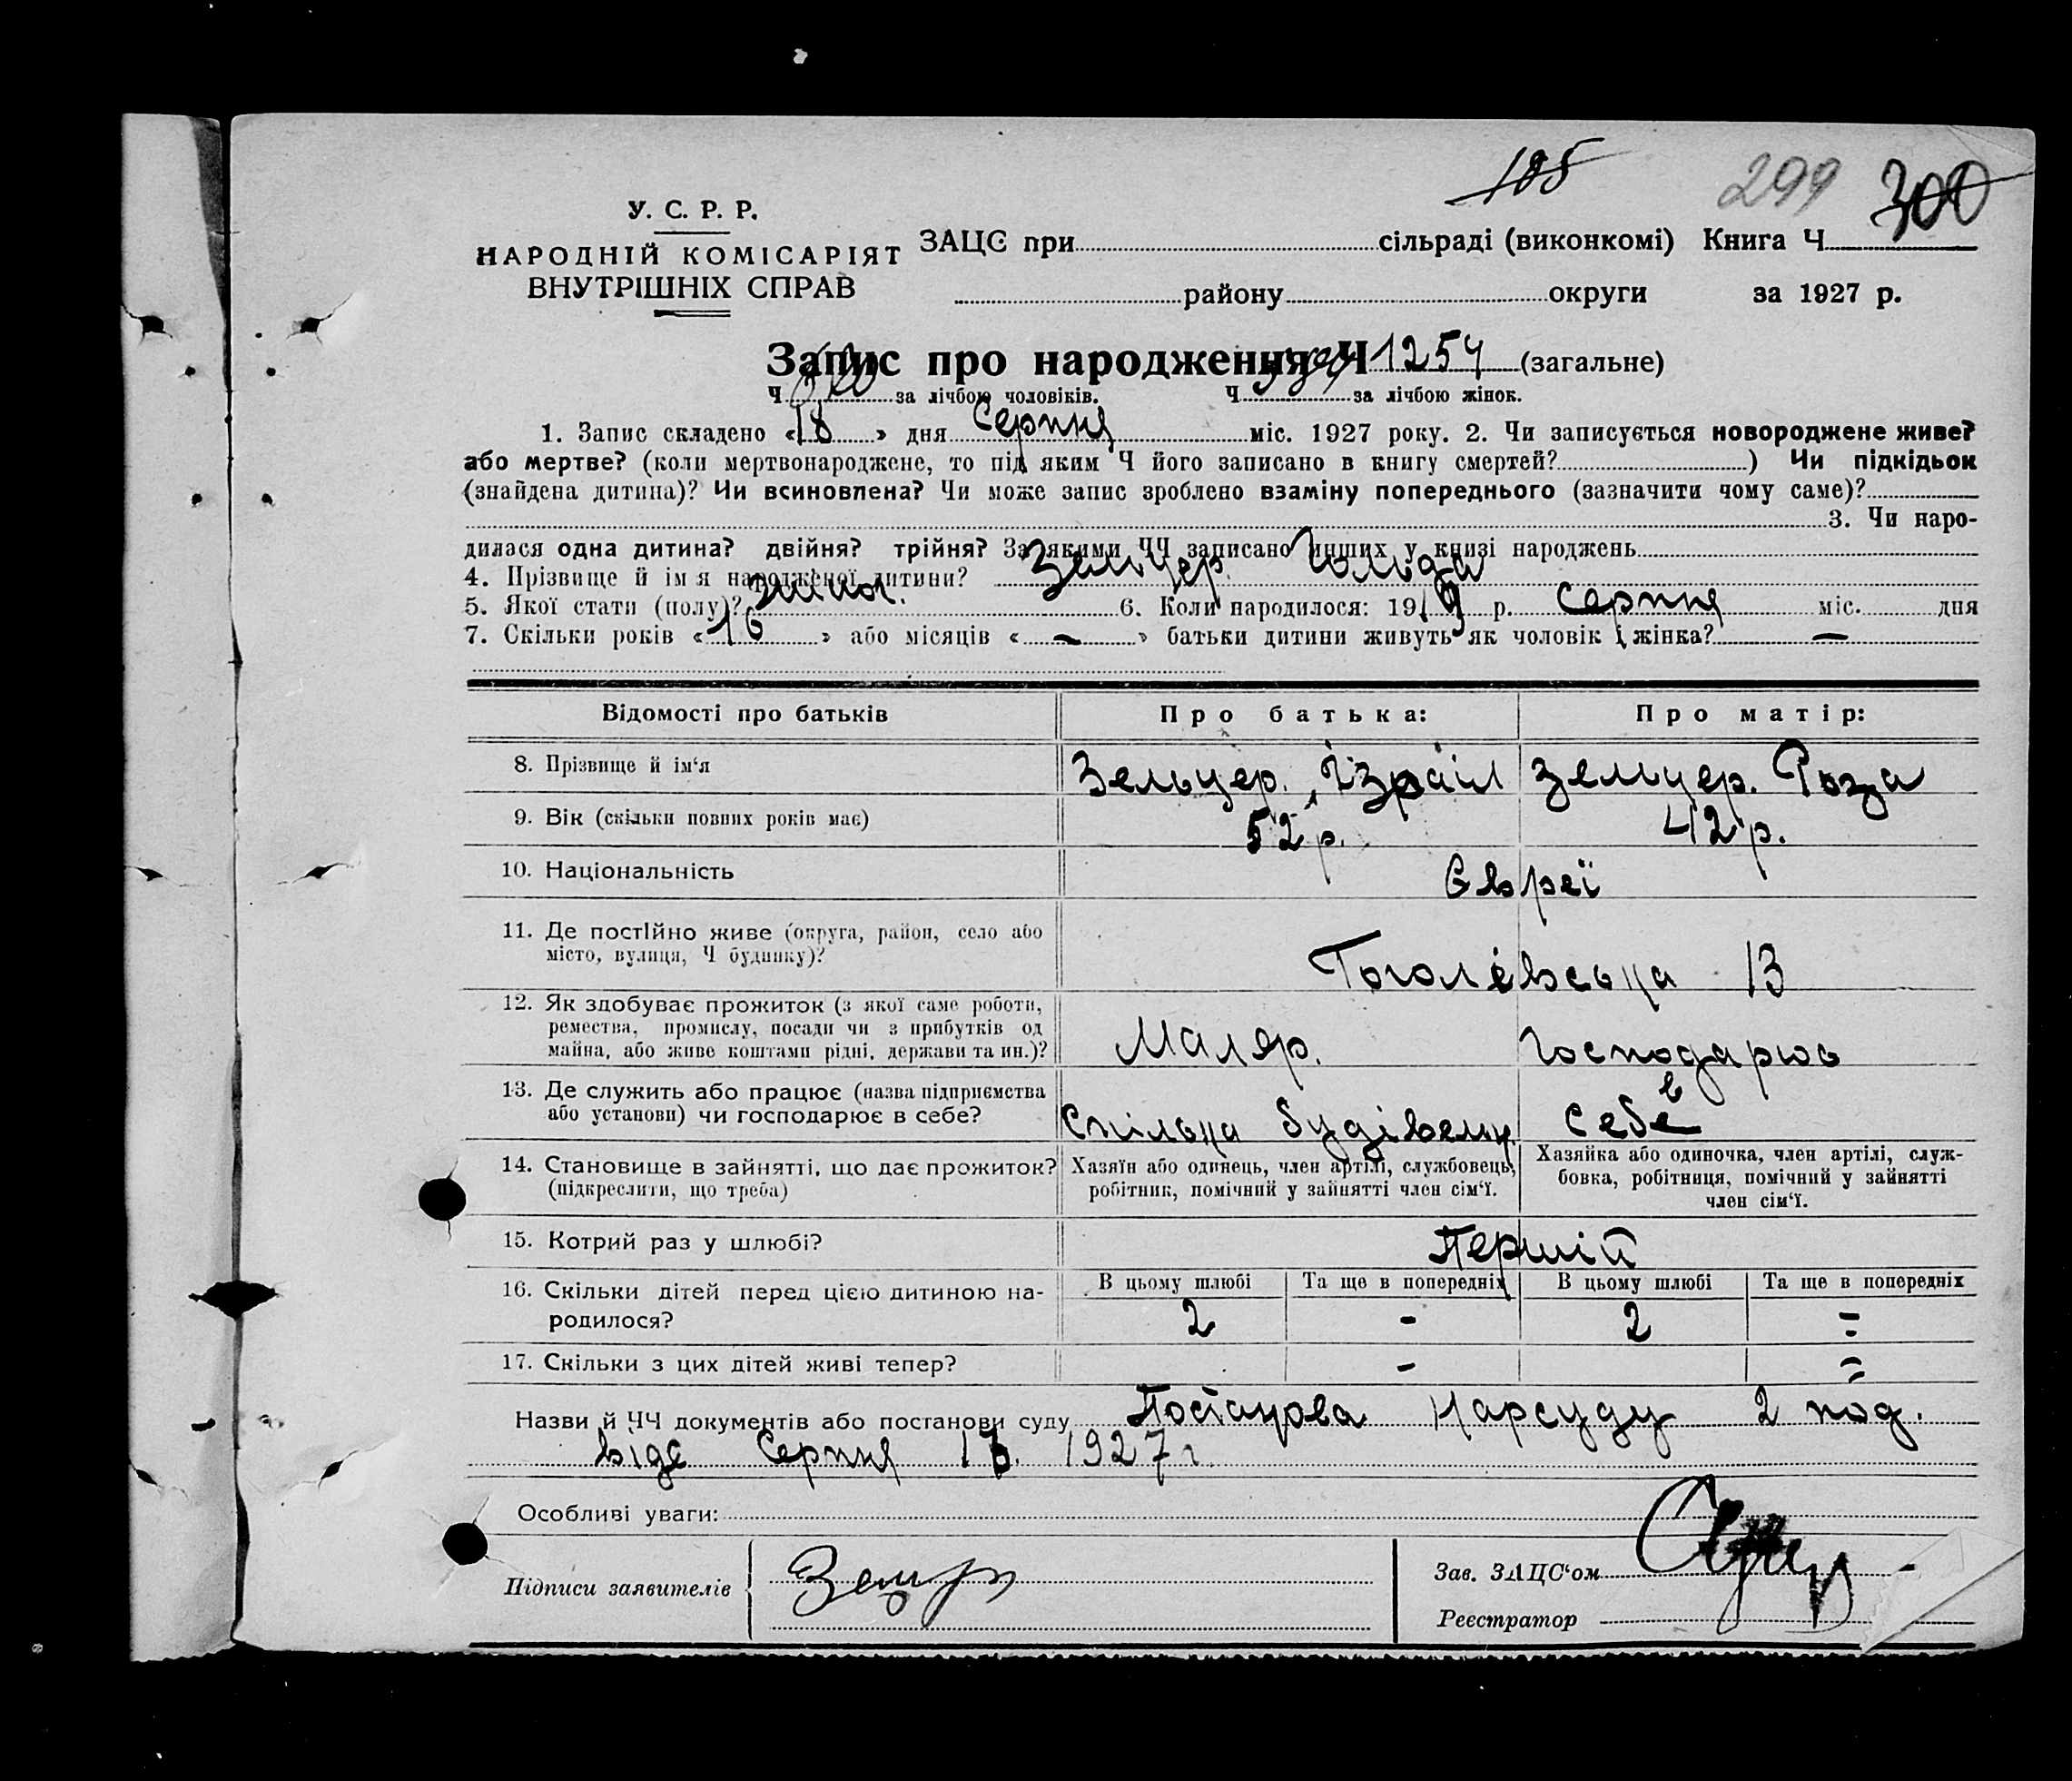 105 299 300
У. С. Р. Р.
НАРОДНІЙ КОМІСАРІЯТ
ВНУТРІШНІХ СПРАВ
ЗАЦС при сільраді (виконкомі) Книга Ч
району округи за 1927 р.
Запис про народження Ч 1254 (загальне)
Ч за лічбою чоловіків. Ч за лічбою жінок.
1. Запис складено « 18 » дня Серпня міс. 1927 року. 2. Чи записується новороджене живе?
або мертве? (коли мертвонароджене, то під яким Ч його записано в книгу смертей? ) Чи підкідьок
(знайдена дитина)? Чи всиновлена? Чи може запис зроблено взаміну попереднього (зазначити чому саме)?
3. Чи наро-
дилася одна дитина? двійня? трійня? За якими ЧЧ записано инших у книзі народжень
4. Прізвище й ім'я народженої дитини? Зельцер Гольда
5. Якої стати (полу)? 6. Коли народилося: 19 р. Серпня міс. дня
7. Скільки років « 16 » або місяців « – » батьки дитини живуть як чоловік і жінка? —
Відомості про батьків Про батька: Про матір:
8. Прізвище й ім‘я Зельцер. Ізраіл Зельцер. Роза
9. Вік (скільки повних років має) 52 р. 42 р.
10. Національність Євреї
11. Де постійно живе (округа, район, село або
місто, вулиця, Ч будинку)? Гоголевська 13
12. Як здобуває прожиток (з якої саме роботи,
ремества, промислу, посади чи з прибутків од
майна, або живе коштами рідні, держави та ин.)? Маляр. Господарює
13. Де служить або працює (назва підприємства
або установи) чи господарює в себе? Спілка будівельн в себе
14. Становище в зайнятті, що дає прожиток?
(підкреслити, що треба)
Хазяїн або одинець, член артілі, службовець,
робітник, помічний у зайнятті член сім‘ї.
Хазяйка або одиночка, член артілі, служ-
бовка, робітниця, помічний у зайнятті
член сім‘ї.
15. Котрий раз у шлюбі? Перший
В цьому шлюбі Та ще в попередніх В цьому шлюбі Та ще в попередніх
16. Скільки дітей перед цією дитиною на-
родилося? 2 - 2 =
17. Скільки з цих дітей живі тепер? - =
Назви й ЧЧ документів або постанови суду Постанова Нарсуду 2 под.
Серпня 1927 г.
Особливі уваги:
Підписи заявителів
Зав. ЗАЦС‘ом
Реєстратор